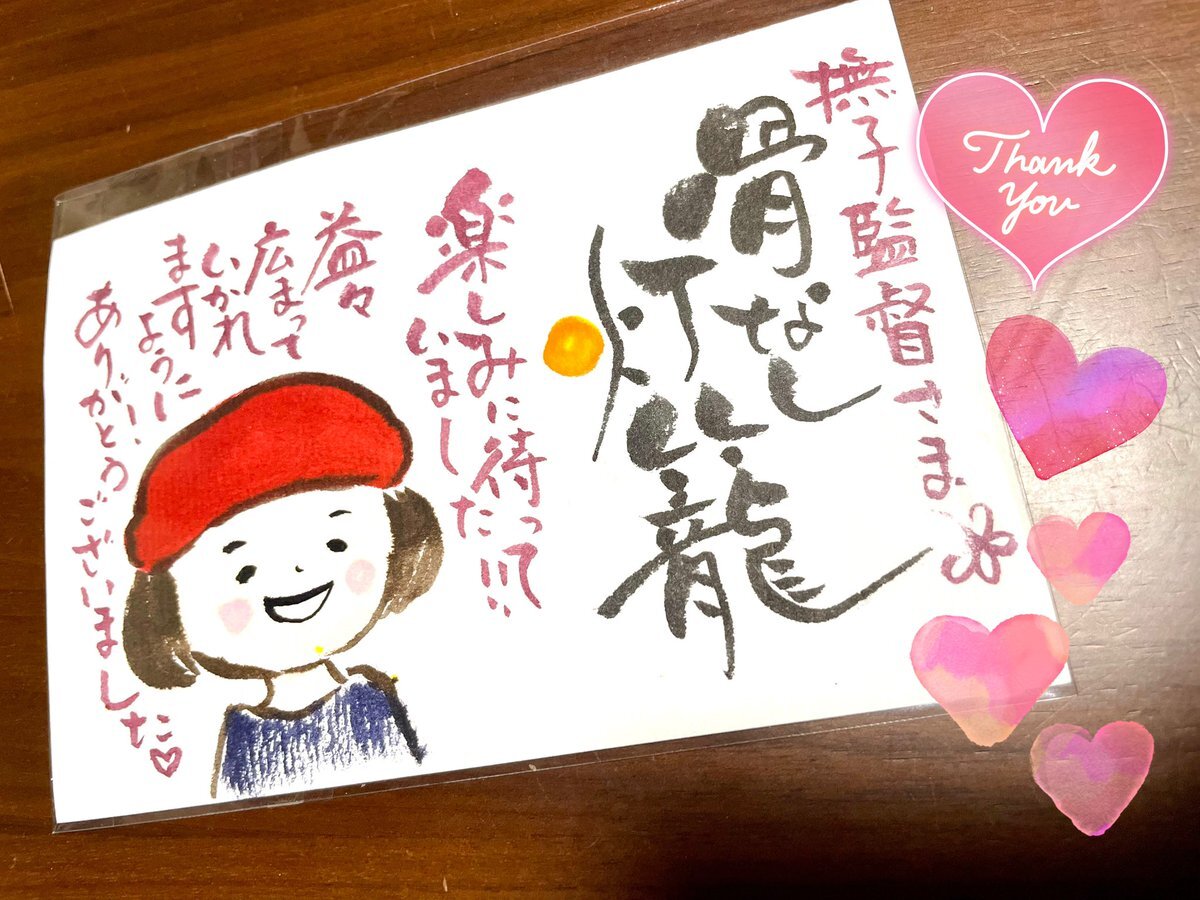 撫子監督さま
骨なし
灯籠
楽しみに待って
いました!!!
益々
広まって
いかれ
ます
ように!!
ありがとうございました♡
Thank
You